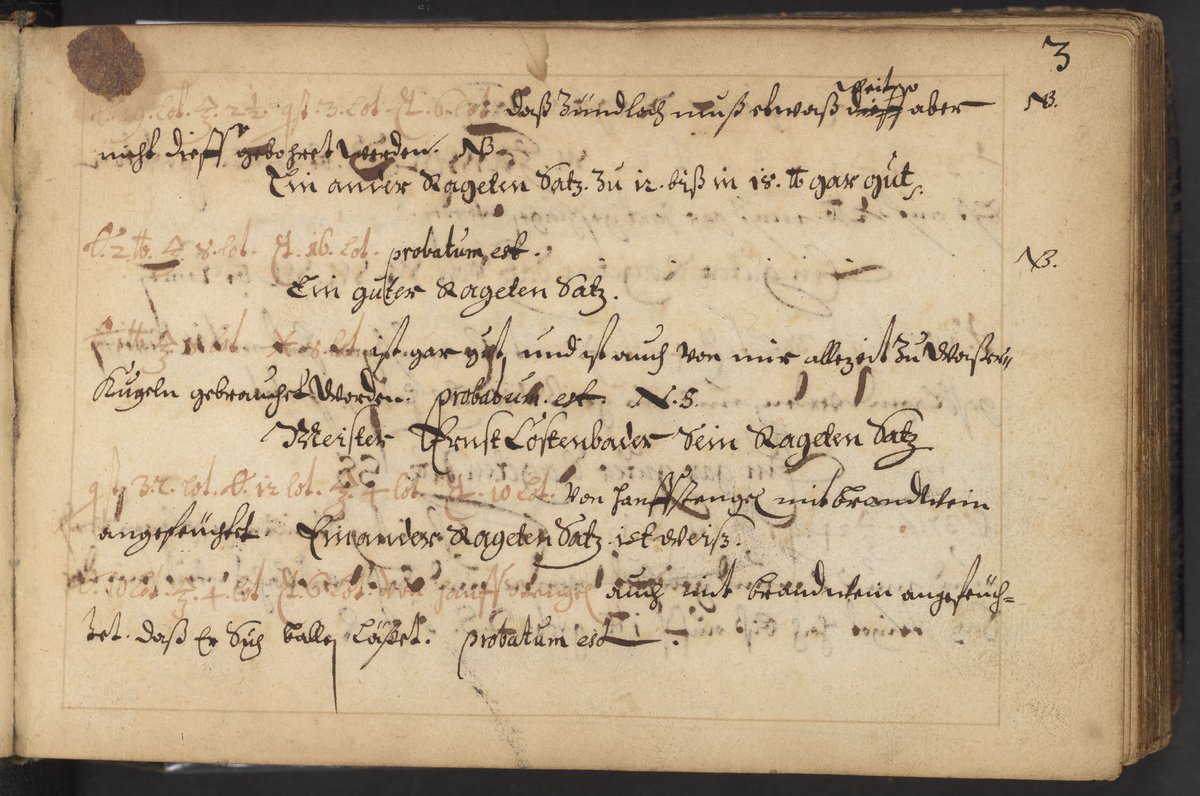 3
weit
19. lot. 2½. 3. lot. 6 lot. daß Zündloch muß etwaß dieff aber NB.
nicht dieff gebohret werden. NB.
Ein ander Rageten Satz. Zu 12. biß in 18. ℔ gar gut.
2 ℔. 8. lot. 16. lot. probatum est. NB.
Ein guter Rageten Satz.
lot. 8. lot ist gar gut, und ist auch von mir allezeit Zu Waßer=
Kugeln gebrauchet worden. probatum est. N.B.
Meister Ernst Lostenbader Sein Rageten Satz
32. lot. 12 lot. 4 lot. 10 lot. von hanffstengel mit brandtwein
angefeüchtet. Ein ander Rageten Satz ist weiß.
10 lot. 4. lot. 6 lot. von hanffstengel auch mit brandtwein angefeüch=
tet. daß Er Sich ballen läßet. probatum est